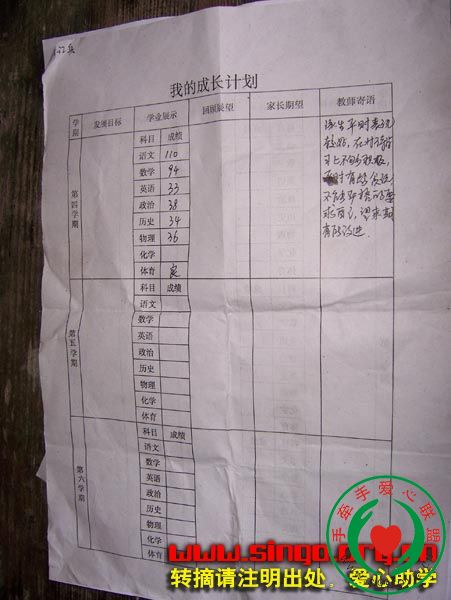 我的成长计划
学期 发展目标 学业展示 回顾展望 家长期望 教师寄语
第四学期
科目 成绩
语文 110
数学 94
英语 33
政治 38
历史 34
物理 36
化学
体育 良
该生平时表现
较好,在对待学
习上不够积极,
求自己,望来期
有所改进.
第五学期
科目 成绩
语文
数学
英语
政治
历史
物理
化学
体育
第六学期
科目 成绩
语文
数学
英语
政治
历史
物理
化学
体育
手牵手爱心联盟
www.singo.org.cn
转摘请注明出处,爱心助学